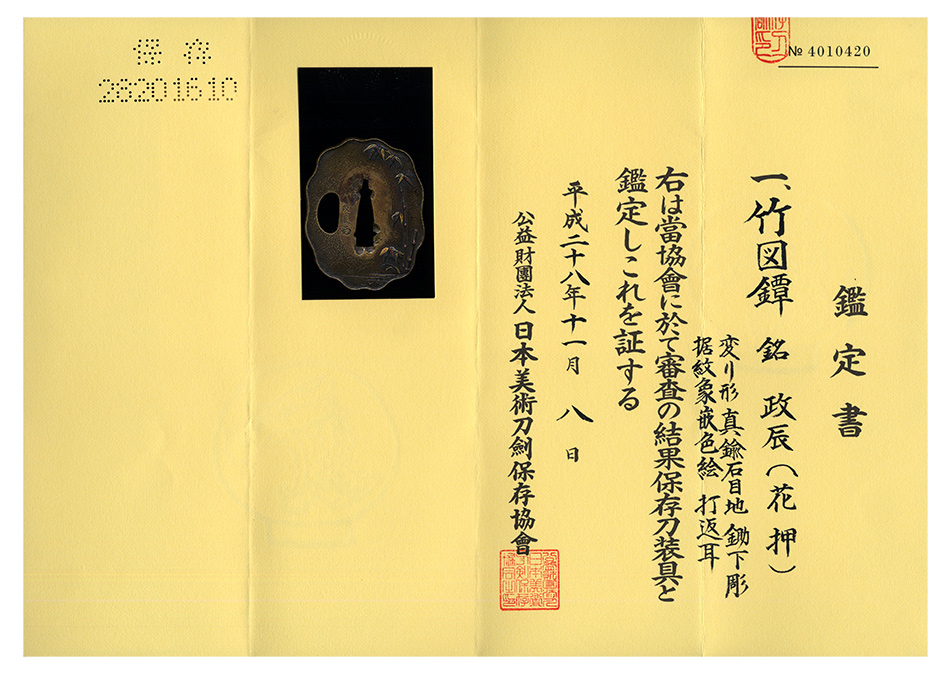 № 4010420
鑑定書
一、竹図鐔 銘 政辰（花押）
変り形 真鍮石目地 鋤下彫
据紋象嵌色絵 打返耳
右は當協會に於て審査の結果保存刀装具と
鑑定しこれを証する
平成二十八年十一月 八 日
公益財團法人 日本美術刀劍保存協會
保存
28201610